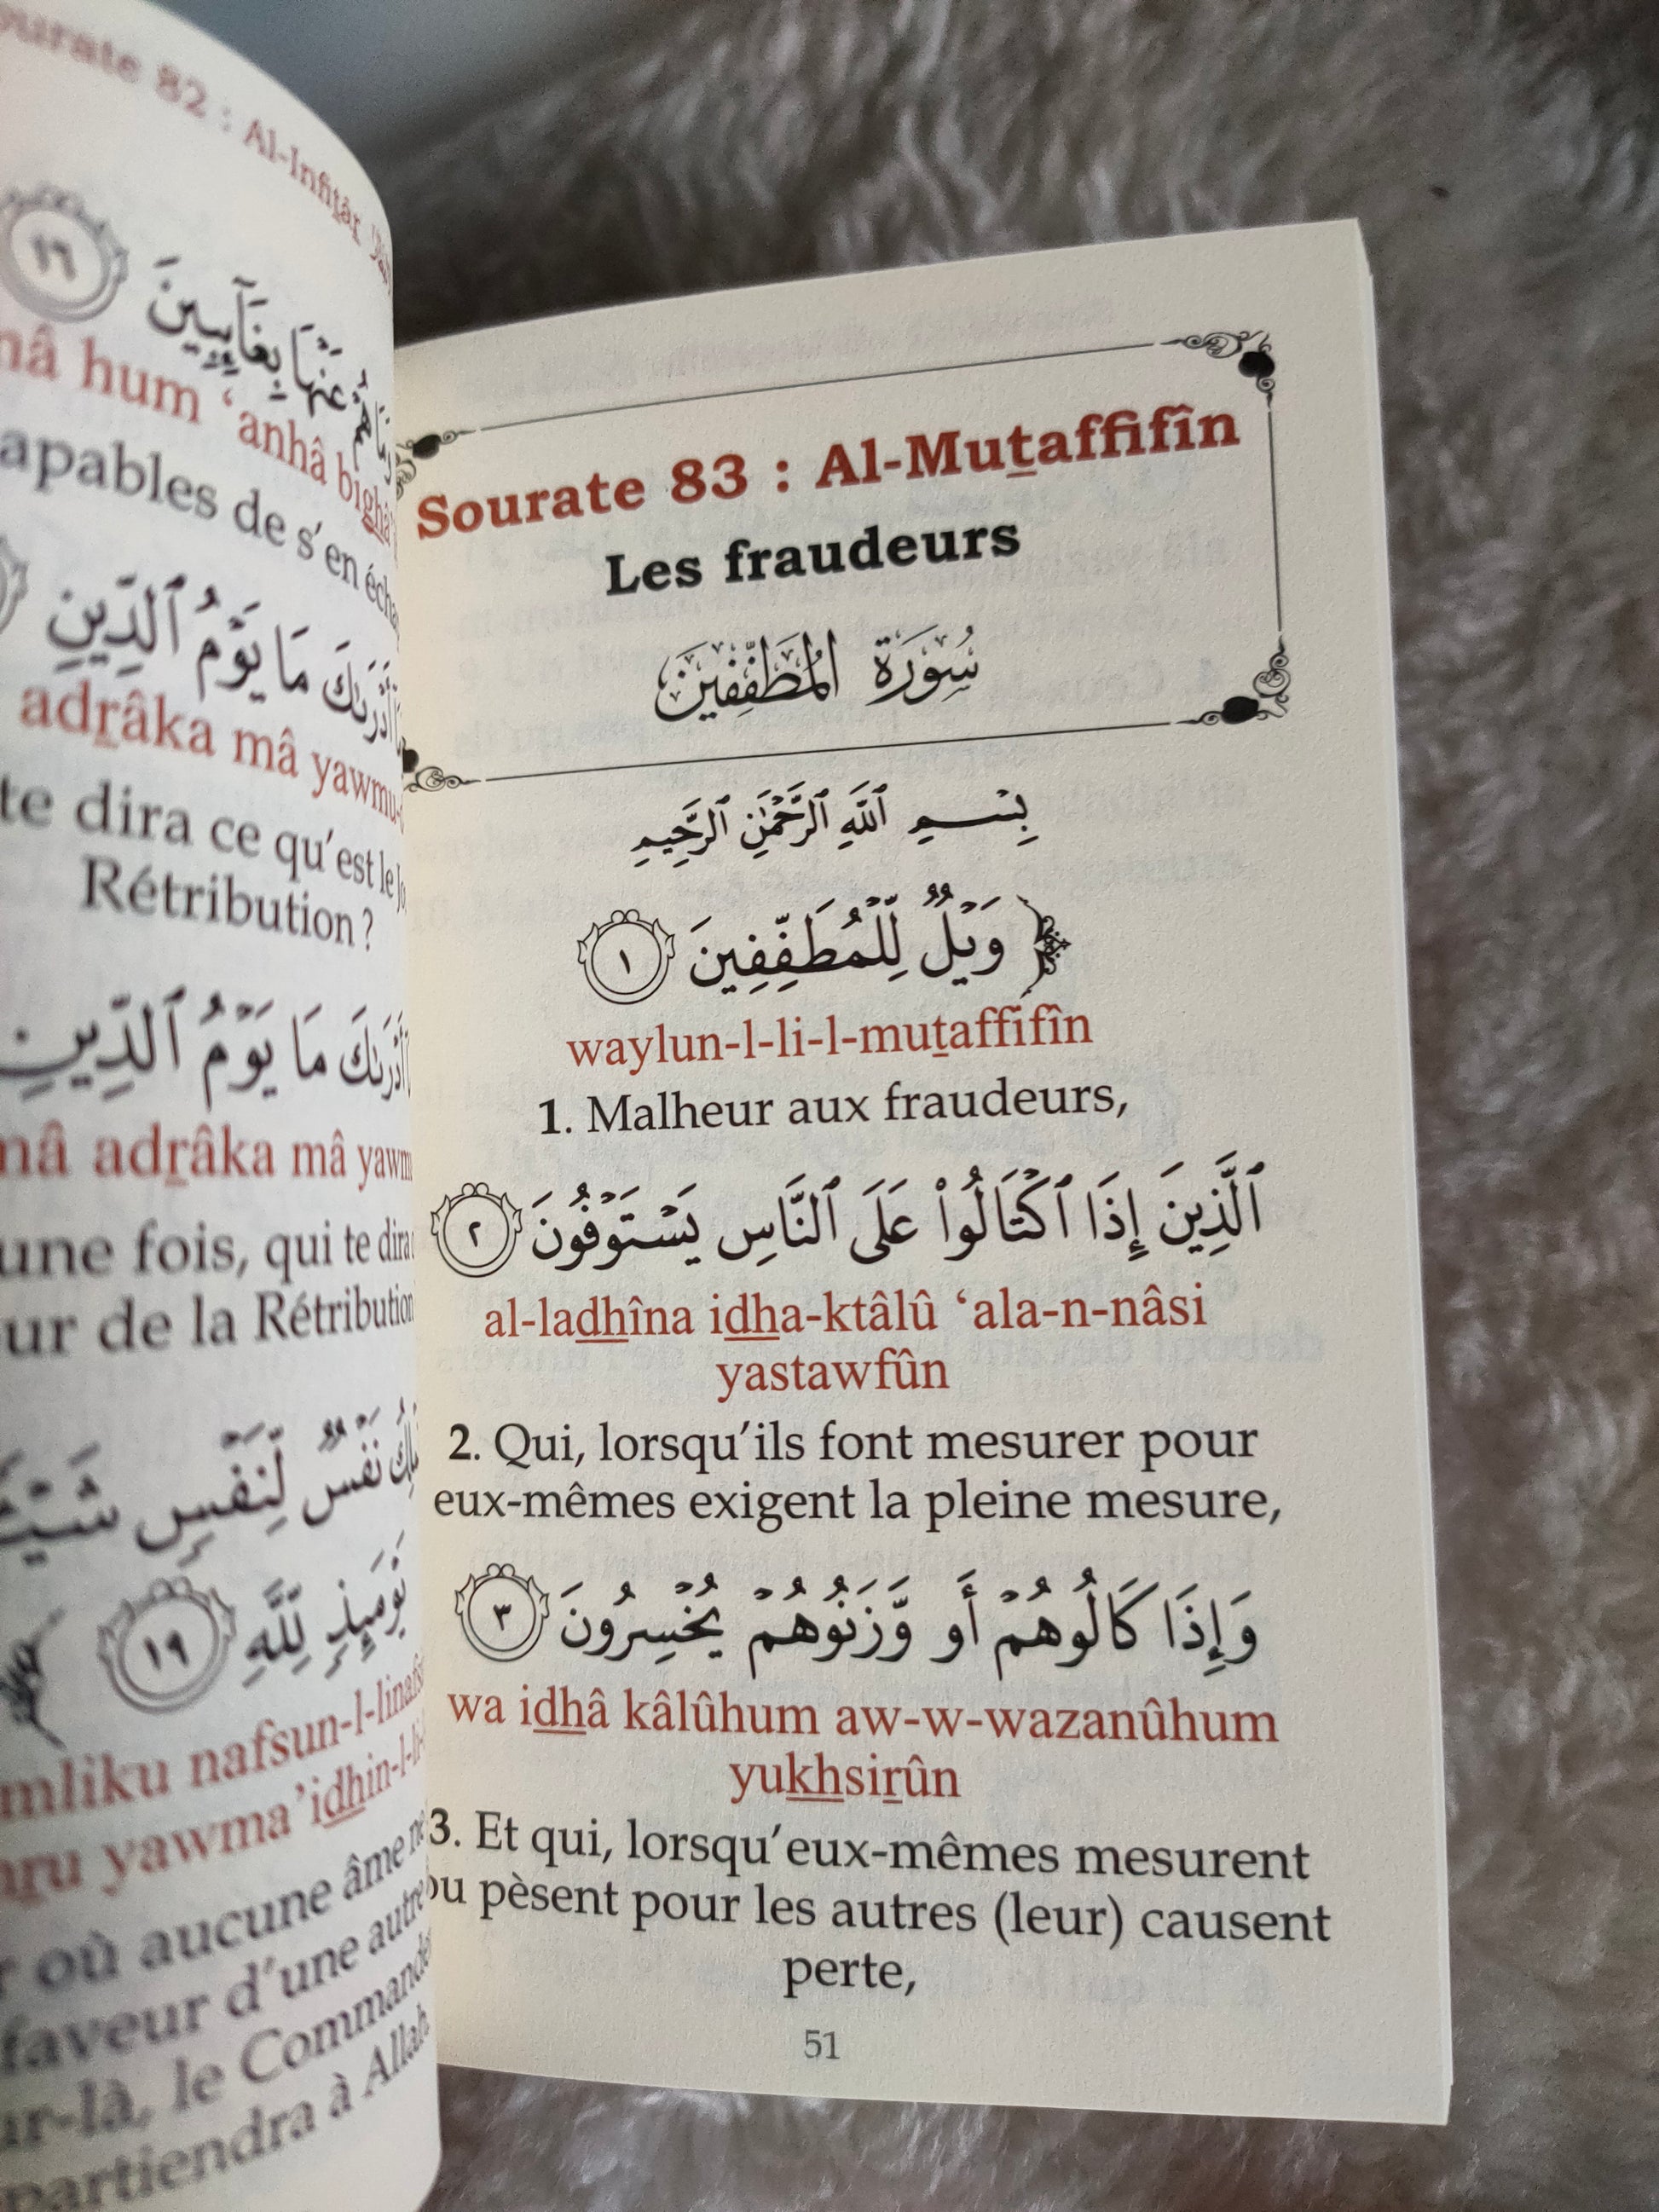 Sourate 82 : Al-Infiṯâṟ
١٦
عَنْهَا بِغَآئِبِينَ
hum ‘anhâ
de s’en
مَا يَوْمُ ٱلدِّينِ
adṟâka mâ
te dira ce qu’est le
Rétribution ?
مَا يَوْمُ ٱلدِّينِ
adṟâka mâ
une fois, qui te dira
de la Rétribution
نَفْسٌ لِّنَفْسٍ
يَوْمَئِذٍ لِّلَّهِ ١٩
nafsun-l-linafsin
yawma’idhin-l-li-
où aucune âme ne
faveur d’une autre
le Commandement
à Allah
Sourate 83 : Al-Muṯaffifîn
Les fraudeurs
سُورَةُ المُطَفِّفِينَ
بِسْمِ ٱللَّهِ ٱلرَّحْمَٰنِ ٱلرَّحِيمِ
وَيْلٌ لِّلْمُطَفِّفِينَ ١
waylun-l-li-l-muṯaffifîn
1. Malheur aux fraudeurs,
ٱلَّذِينَ إِذَا ٱكْتَالُوا۟ عَلَى ٱلنَّاسِ يَسْتَوْفُونَ ٢
al-ladhîna idha-ktâlû ‘ala-n-nâsi
yastawfûn
2. Qui, lorsqu’ils font mesurer pour
eux-mêmes exigent la pleine mesure,
وَإِذَا كَالُوهُمْ أَو وَّزَنُوهُمْ يُخْسِرُونَ ٣
wa idhâ kâlûhum aw-w-wazanûhum
yukhsiṟûn
3. Et qui, lorsqu’eux-mêmes mesurent
ou pèsent pour les autres (leur) causent
perte,
51